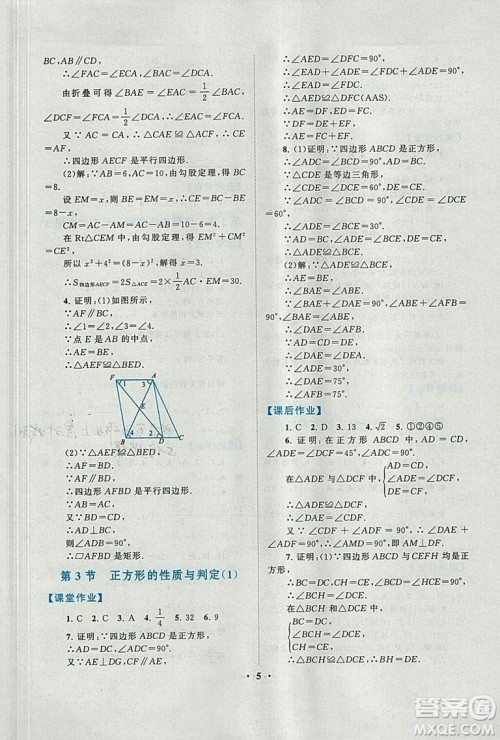 BC,AB∥CD,
∴∠FAC=∠ECA,∠BAC=∠DCA.
由折叠可得∠BAE=∠EAC=1/2∠BAC,
∠DCF=∠FCA=1/2∠DCA.
∴∠EAC=∠FCA.∴AE∥CF.
又∵AF∥CE,
∴四边形AECF是平行四边形.
(2)解:∵AB=6,AC=10,由勾股定理,得BC
=8.
由折叠可得AM=AB=6,
设BE=x,则EM=x,∴CE=BC-BE
=(8-x),
CM=AC-AM=10-6=4.
在Rt△CEM中,由勾股定理,得EM²+CM²
=CE²,
所以x²+4²=(8-x)²,解得x=3.
∴S四边形AECF=2S△ACE=2×1/2AC·EM=30.
4. 证明:(1)如图所示,
∵AF∥BC,
∴∠1=∠4,∠2=∠3.
∵点E是AB的中点,
∴AE=BE.
∴△AEF≌△BED.
F A
1 3
E
2
4 5
B D C
(2)∵△AEF≌△BED,
∴AF=BD.
又∵AF∥BD,
∴四边形AFBD是平行四边形.
又∵BD=CD,
∴AF=CD.
又∵AF∥DC,
∴四边形AFDC是平行四边形.
∴DF=AC.
又∵AB=AC,
∴AB=DF.
∴四边形AFBD是矩形.
第3节 正方形的性质与判定(1)
【课堂作业】
1. C 2. C 3. A 4. 1/4 5. 32 6. 9
7. 证明:∵四边形ABCD是正方形,
∴AD=CD,∠ADC=90°.
∵△AEC≌△DFC,
∴∠AED=∠DFC=90°.
∴∠ADE+∠CDF=∠ADE+∠DAE=90°,
∴∠CDF=∠DAE.
∴△AED≌△DFC(AAS).
∴AE=DF,ED=FC.
∵DF=DE+EF,
∴AE=FC+EF.
8. (1)证明:∵四边形ABCD是正方形,
∴∠ADC=∠BCD=90°,AD=BC.
∵△CDE是等边三角形,
∴∠CDE=∠DCE=60°,DE=CE.
∴∠ADE=∠BCE=30°.
∴△ADE≌△BCE.
(2)解:∵△ADE≌△BCE,
∴AE=BE,
∴∠BAE=∠ABE.
又∵∠BAE+∠DAE=90°,∠ABE+∠AFB=
90°,
∴∠DAE=∠AFB.
∵AD=CD=DE,
∴∠DAE=∠DEA.
又∵∠ADE=30°,
∴∠DAE=75°.
∴∠AFB=75°.
【课后作业】
1. C 2. D 3. A 4. √2 5. ①②④⑤
6. 证明:∵在正方形ABCD中,AD=CD,
∠ADE=∠CDF=45°,∠ADC=90°,
在△ADE与△CDF中,{AD=CD,
∠ADE=∠CDF,
DE=DF,
∴△ADE≌△CDF.
∴∠DAE=∠DCF.
又∵∠DCF+∠CFD=90°,
∴∠DAE+∠CFD=90°.
∴AE⊥CF.
7. 证明:∵四边形ABCD与CEFH均是正
方形,
∴BC=DC,CH=CE,∠BCH=∠DCE=90°.
在△BCH与△DCE中,
{BC=DC,
∠BCH=∠DCE,
CH=CE,
∴△BCH≌△DCE,
∴BH=DE.
· 5 ·
答案圈
MXQE.COM